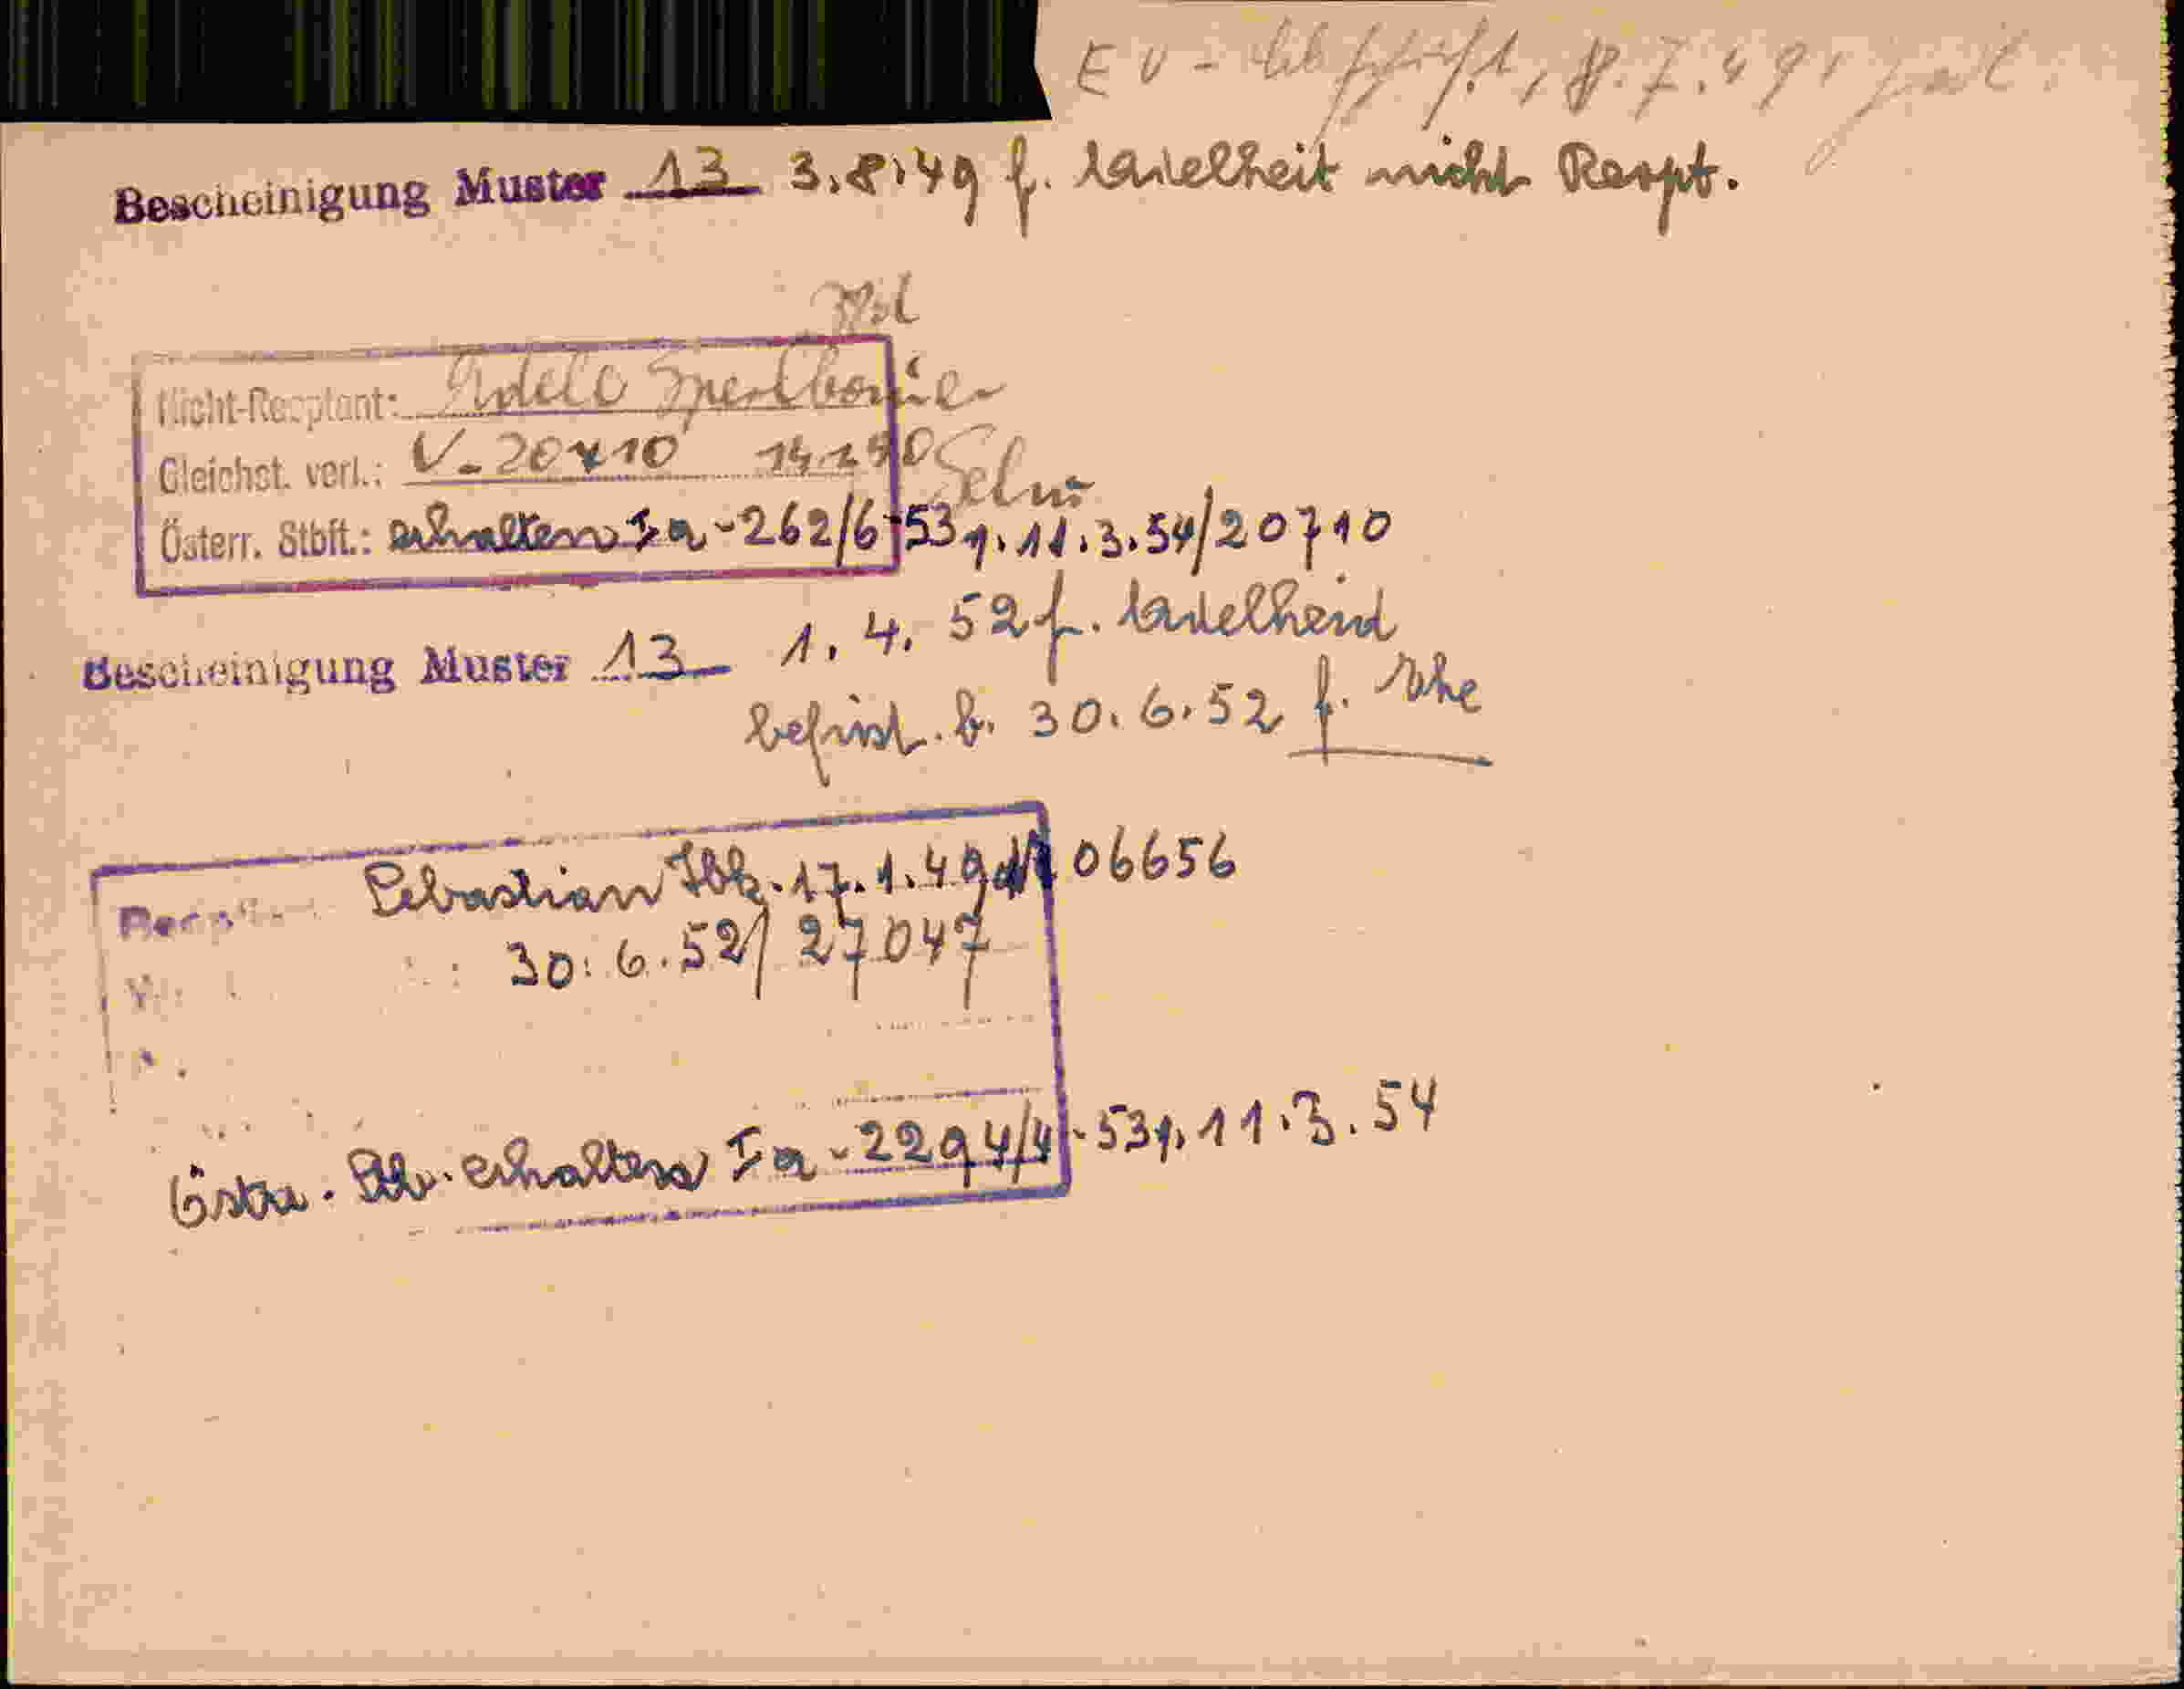 EV - Abschrift, 8.7.49,
Bescheinigung Muster 13 3.8.49 f. Adelheit nicht Reopt.
Nicht-Reoptant: Adele
Gleichst. verl.: V-20710
Österr. Stbft.: erhalten Ia-262/6-53 v. 11.3.54/20710
Bescheinigung Muster 13 1. 4. 52 f. Adelheid
befrist. b. 30.6.52 f. Ehe
Sebastian Ibk. 17.1.49 06656
30.6.52/ 27047
Östr. Stb. erhalten Ia-2294/4-53 v. 11.3.54